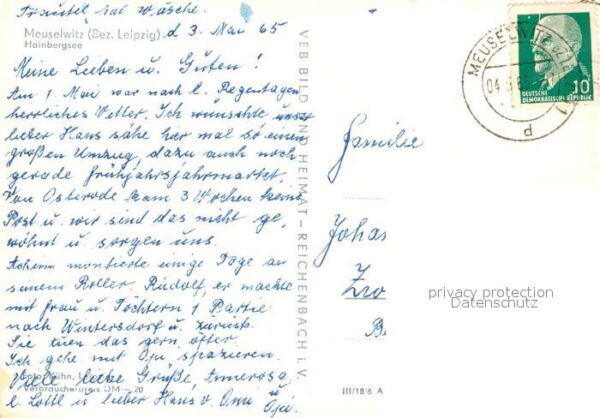 Träutel hat Wäsche.
Meuselwitz (Bez. Leipzig)
d 3. Mai 65
Hainbergsee
Meine Lieben u. Guten!
Am 1 Mai war nach l. Regentagen
herrliches Wetter. Ich wünschte unser
lieber Hans sähe hier mal so einen
großen Umzug, dazu auch noch
gerade Frühjahrsjahrmarket.
Von Osterode kam 3 Wochen keine
Post u. wir sind das nicht ge,
wöhnt u. sorgen uns.
Achim montierte einige Tage an
seinem Roller. Rudolf, er machte
mit Frau u. Töchtern 1 Partie
nach Wintersdorf u. zurück.
Sie tuen das gern öfter.
Ich gehe mit Opi spazieren.
Foto: Kühn,
Viele liebe Grüße, Annerosa,
Verbraucherpreis DM -.20
l. Lottl u lieber Hans v. Omi u
Opi.
VEB BILD UND HEIMAT - REICHENBACH i. V.
MEUSELWITZ
04
d
DEUTSCHE
DEMOKRATISCHE REPUBLIK
10
Familie
Johas
Zro
privacy protection
Datenschutz
III/18/6 A